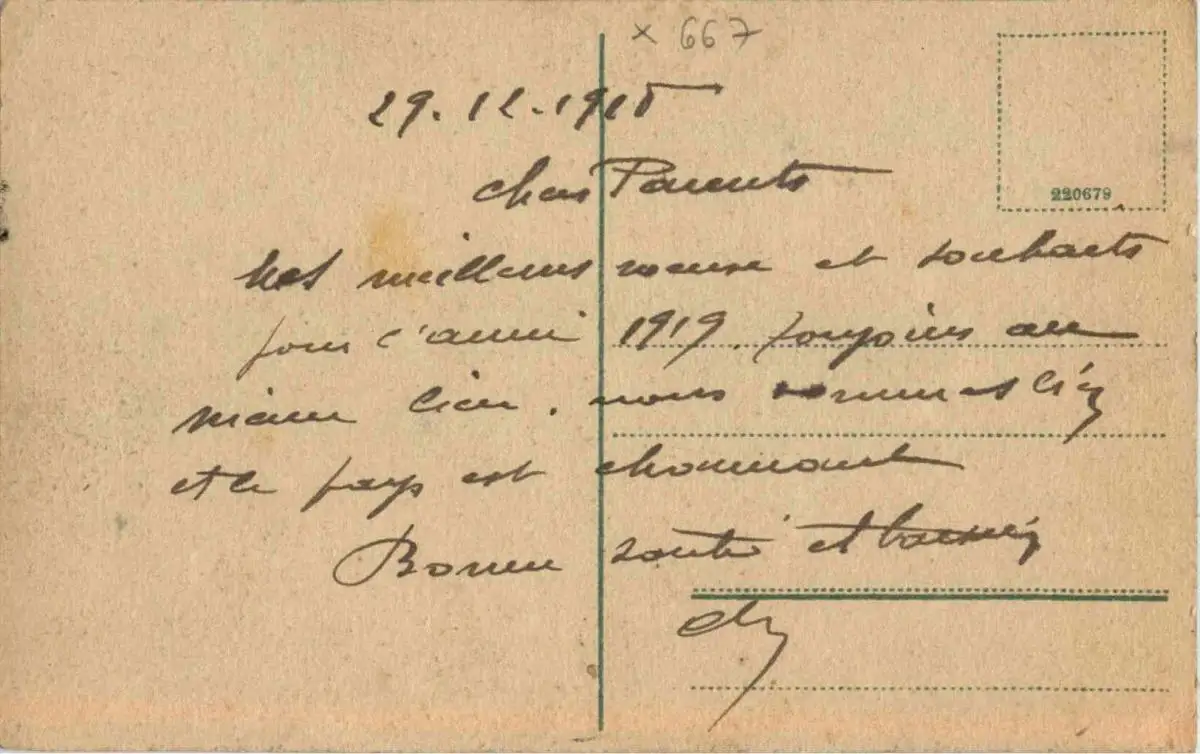 x 667
29.12.1918
220679
chers Parents
mes meilleurs voeux et souhaits
pour l'année 1919. toujours au
même lieu. nous sommes
et le pays est charmant
Bonne santé et baisers